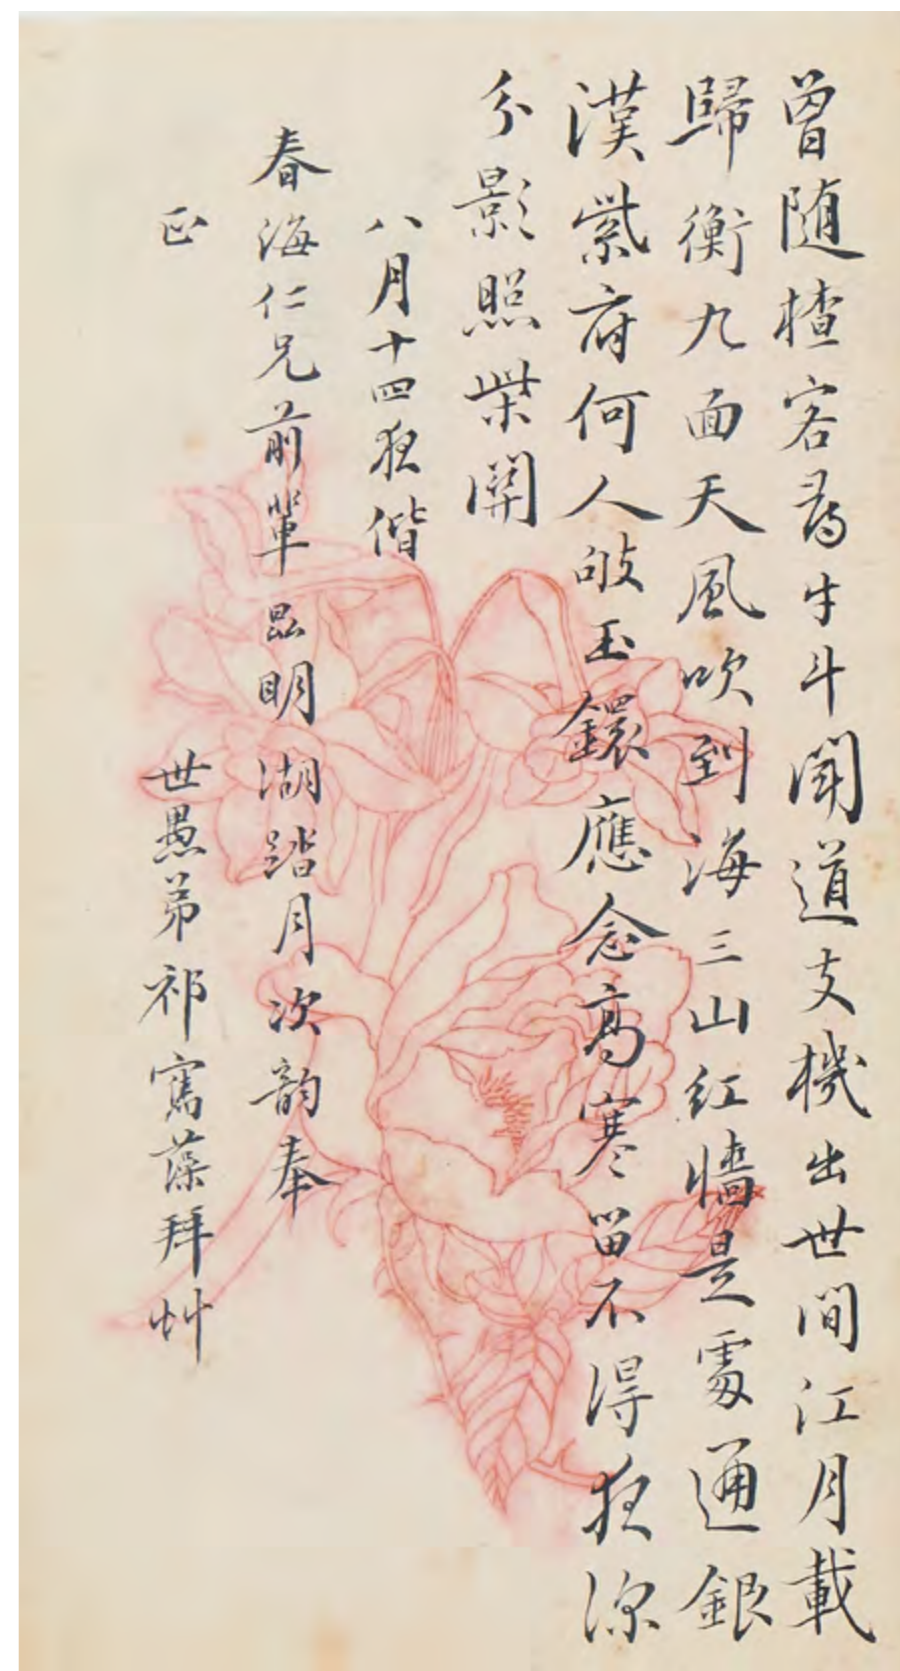 曾随楂客尋牛斗聞道支機出世間江月載
歸衡九面天風吹到海三山紅牆是處通銀
漢紫府何人敂玉鐶應念高寒留不得夜深
分影照柴關
八月十四夜偕
春海仁兄前輩昆明湖踏月次韵奉
正
世愚弟祁寯藻拜艸